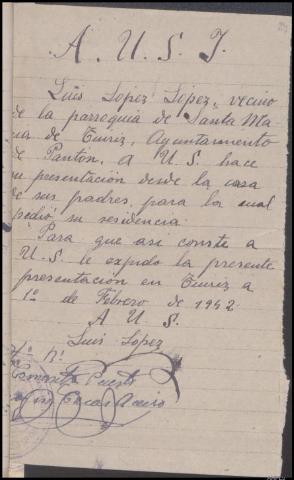 A. U. S. I.
Luis Lopez Lopez, vecino
de la parroquia de Santa Ma
ria de Tuiriz, Ayuntamento
de Pantón, A U.S. hace
su presentación desde la casa
de sus padres, para la cual
pidió su residencia.
Para que asi conste a
U.S. le expido la presente
presentación en Tuiriz a
1º de Febrero de 1942
A U S.
Luis López
Vº Bº